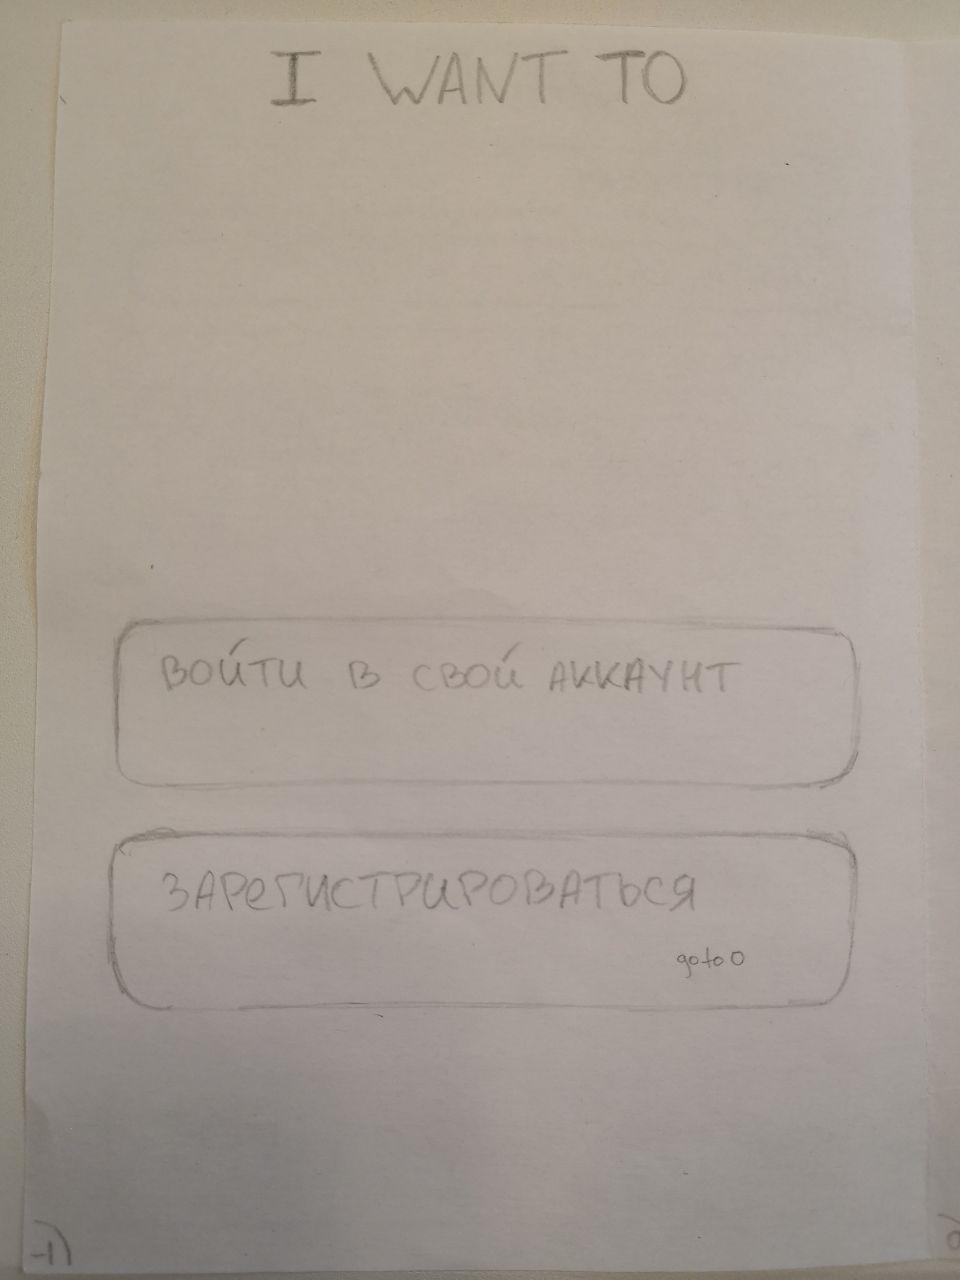 I WANT TO
ВОЙТИ В СВОЙ АККАУНТ
ЗАРЕГИСТРИРОВАТЬСЯ
go to 0
-1)